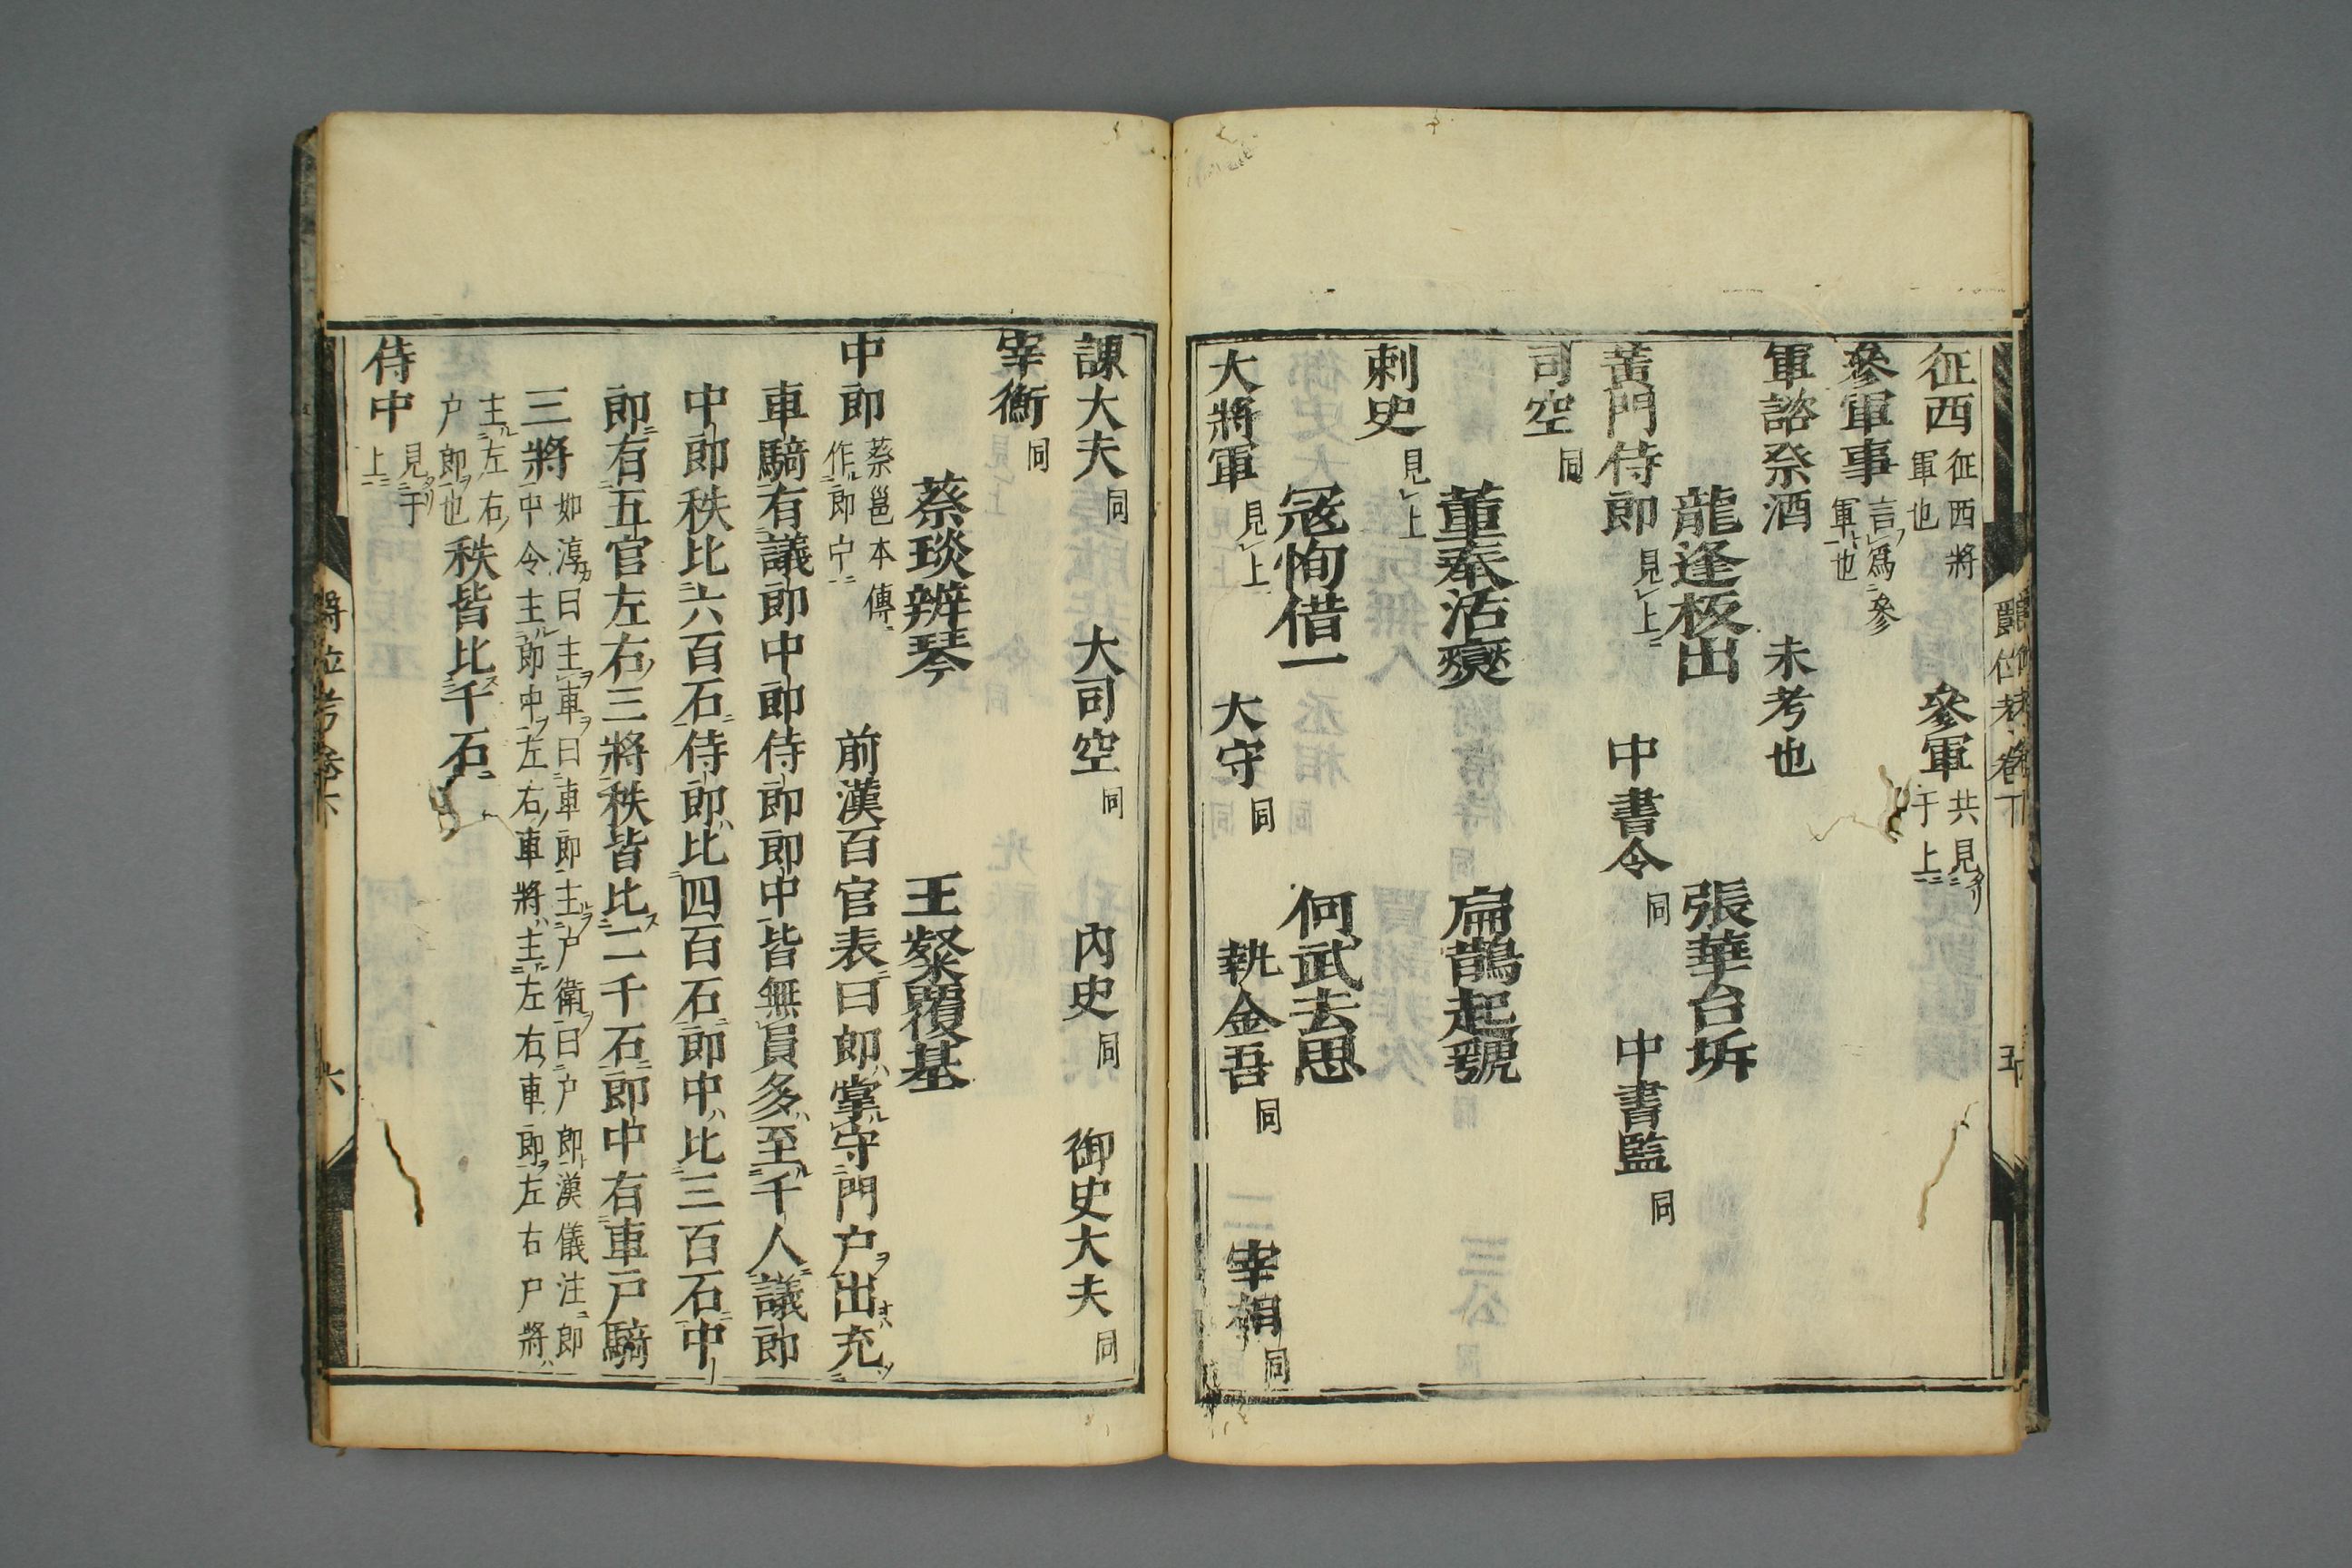 征西征西將軍也　參軍共見于上
參軍事言爲參軍也
軍諮祭酒　未考也
龍逢板出　張華台坼
黃門侍郎見上　中書令同　中書監同
司空同
董奉活燮　扁鵲起虢
刺史見上
寇恂借一　何武去思
大將軍見上　大守同　執金吾同　宰相同
諌大夫同　大司空同　內史同　御史大夫同
宰衡同
蔡琰辨琴　王粲覆棊
中郎蔡邕本傳作郎中　前漢百官表曰郎掌守門户出充
車騎有議郎中郎侍郎郎中皆無員多至千人議郎
中郎秩比六百石侍郎比四百石郎中比三百石中
郎有五官左右三將秩皆比二千石郎中右車戸騎
三將如淳曰主車曰車郎主户衛曰户郎漢儀注郎
中令主郎中左右車將主左右車郎左右戸將
主左右户郎也秩皆比千石
侍中見于上
爵位考卷下
六